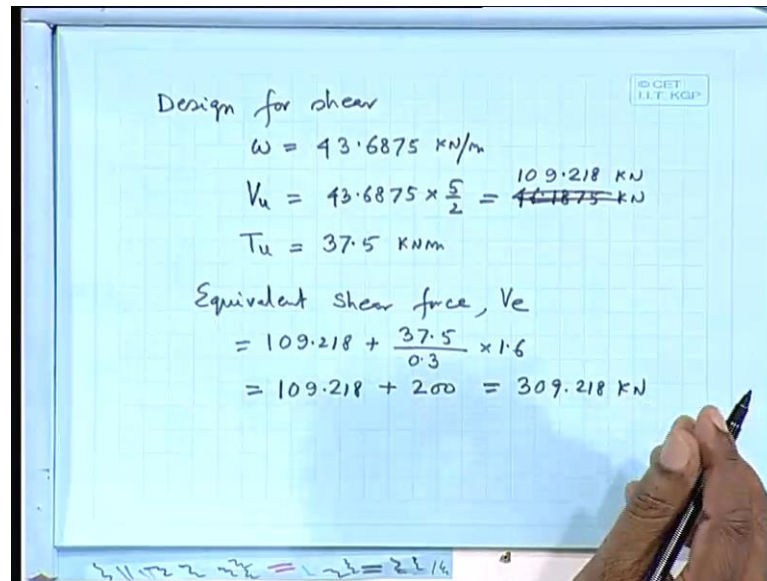 © CET
I.I.T. KGP
Design for shear
ω = 43.6875 KN/m
Vu = 43.6875 × 5/2 = 109.218 KN
46.1875 KN
Tu = 37.5 KNm
Equivalent shear force, Ve
= 109.218 + 37.5/0.3 × 1.6
= 109.218 + 200 = 309.218 KN